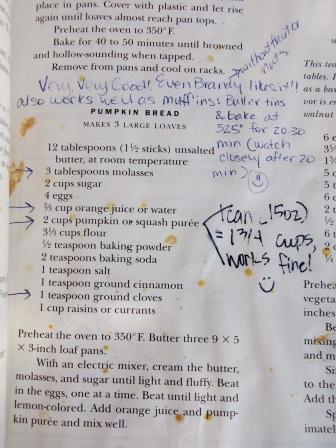 place in pans. Cover with plastic and let rise
again until loaves almost reach pan tops.
Preheat the oven to 350°F.
Bake for 40 to 50 minutes until browned
and hollow-sounding when tapped.
Remove from pans and cool on racks.
without fruit or
nuts
Very, Very Good! Even Brandy likes it!!
also works well as muffins: Butter tins
& bake at
325° for 20-30
min (watch
closely after 20
min)
PUMPKIN BREAD
MAKES 3 LARGE LOAVES
12 tablespoons (1½ sticks) unsalted
butter, at room temperature
3 tablespoons molasses
2 cups sugar
4 eggs
⅔ cup orange juice or water
2 cups pumpkin or squash purée
3⅓ cups flour
½ teaspoon baking powder
2 teaspoons baking soda
1 teaspoon salt
1 teaspoon ground cinnamon
1 teaspoon ground cloves
1 cup raisins or currants
1 can (15oz)
= 1 3/4 cups,
works fine!
Preheat the oven to 350°F. Butter three 9 × 5
× 3-inch loaf pans.
With an electric mixer, cream the butter,
molasses, and sugar until light and fluffy. Beat
in the eggs, one at a time. Beat until light and
lemon-colored. Add orange juice and pump-
kin purée and mix well.
This tea
tables. I
as a bas
vor is en
walnut
Prehea
vegeta
inches
Be
mixing
and m
Sin
to the
Add th
Sp
imatel